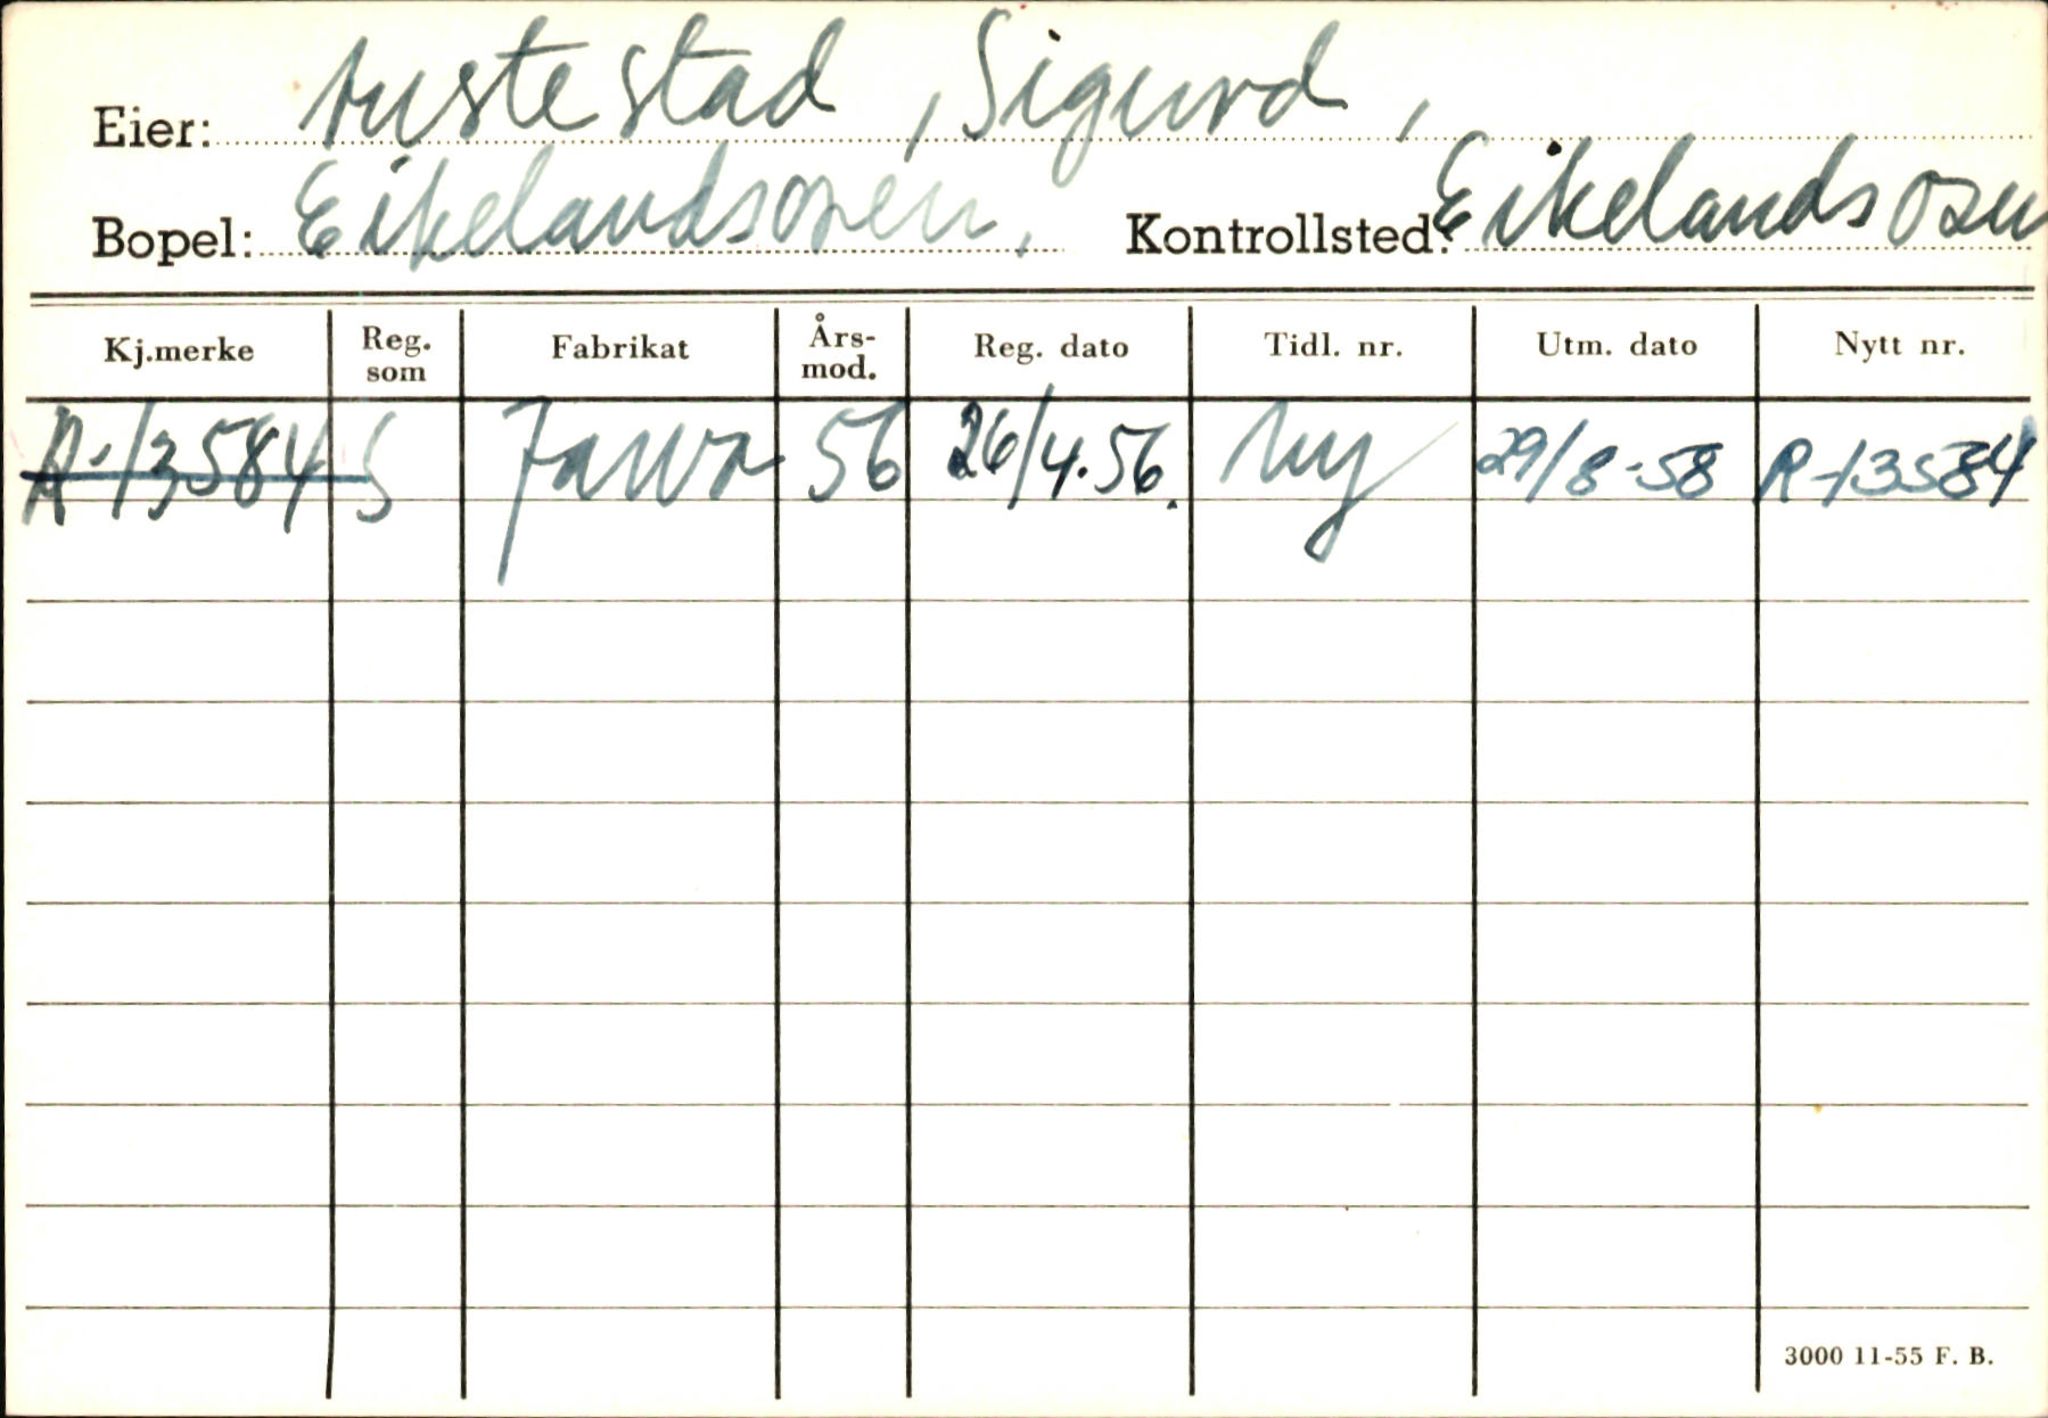 Eier: Austestad, Sigurd,
Bopel: Eikelandsosen. Kontrollsted: Eikelandsosen
Kj.merke Reg. som Fabrikat Års-mod. Reg. dato Tidl. nr. Utm. dato Nytt nr.
R-13584 S Jawa 56 26/4.56. Ny 29/8-58 R-13584
3000 11-55 F. B.